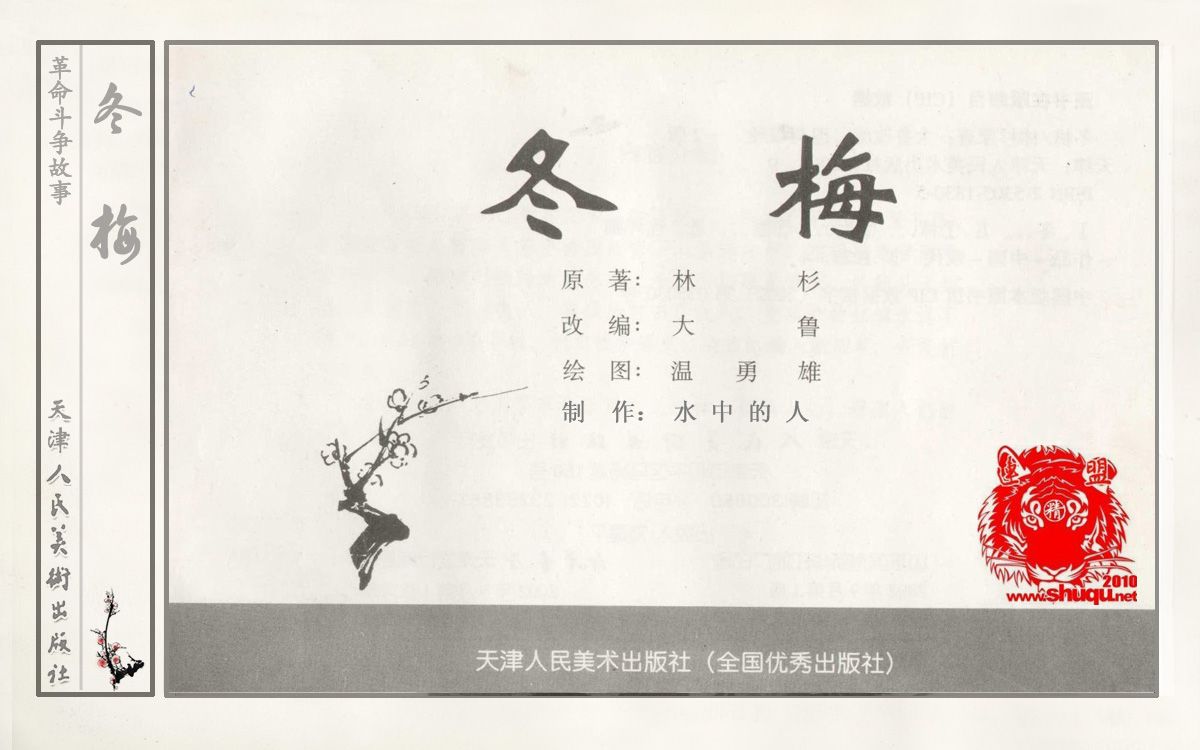 革命斗争故事
冬梅
天津人民美術出版社
冬 梅
原 著: 林 杉
改 编: 大 鲁
绘 图: 温 勇 雄
制 作: 水 中 的 人
連 盟
精
2010
www.shuqu.net
天津人民美术出版社（全国优秀出版社）